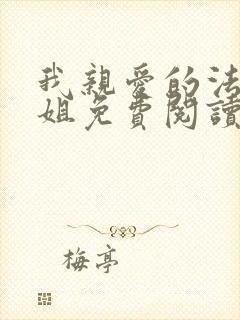 我親愛的法
姐免費閱讀
梅亭